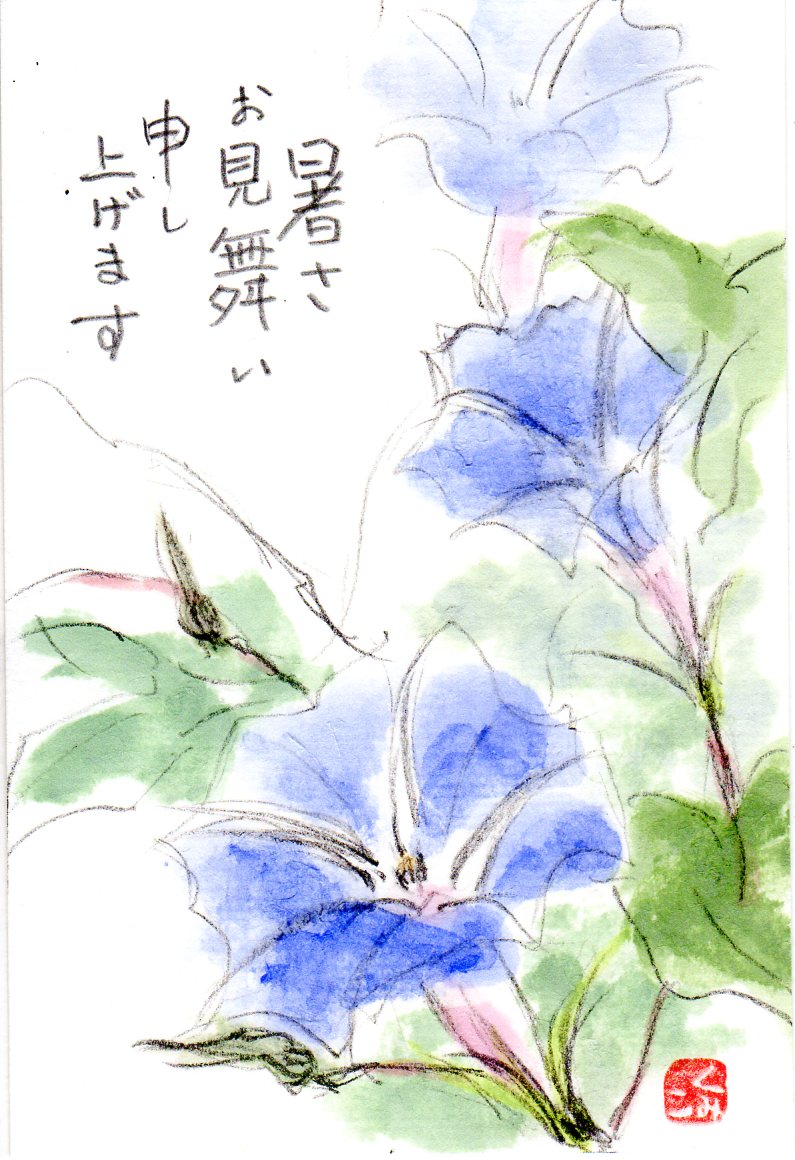 暑さ
お見舞い
申し
上げます
くみこ